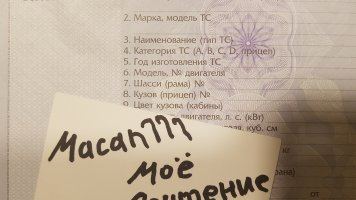 2. Марка, модель ТС
3. Наименование (тип ТС)
4. Категория ТС (А, В, С, D, прицеп)
5. Год изготовления ТС
6. Модель, № двигателя
7. Шасси (рама) №
8. Кузов (прицеп) №
9. Цвет кузова (кабины)
двигателя, л.с. (кВт)
двигателя, куб. см
кг
рана)
от
Моё